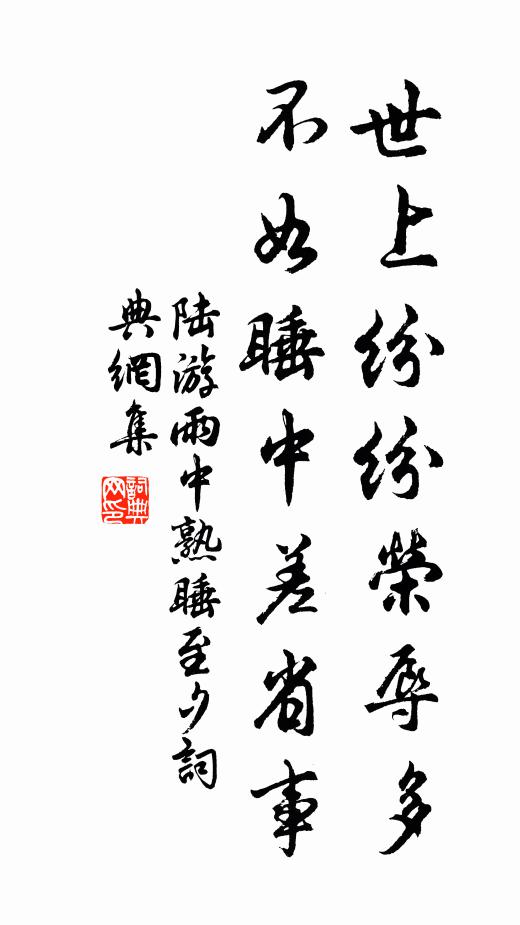 世上紛紛榮辱多
不如睡中差省事
陆游雨中熟睡至夕詞
典網集
詞典
网印